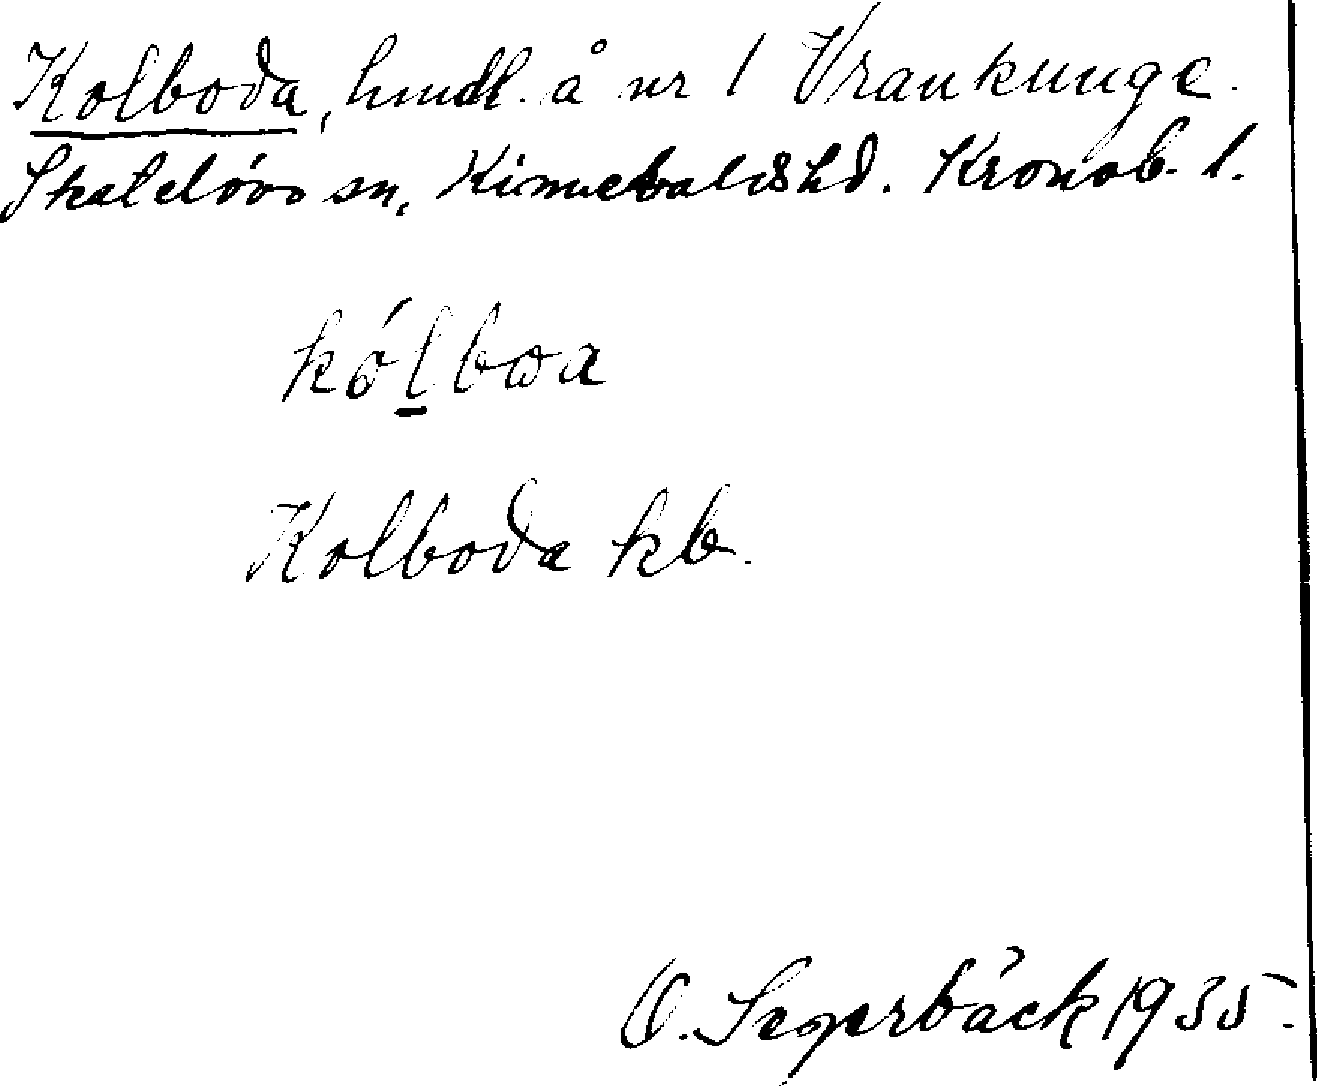 Kolboda, hmdl. å nr 1 Vrankunge.
Skatelövs sn, Kinnevalds hd. Kronob. l.
kólboa
Kolboda kb.
O. Segerbäck 1935.